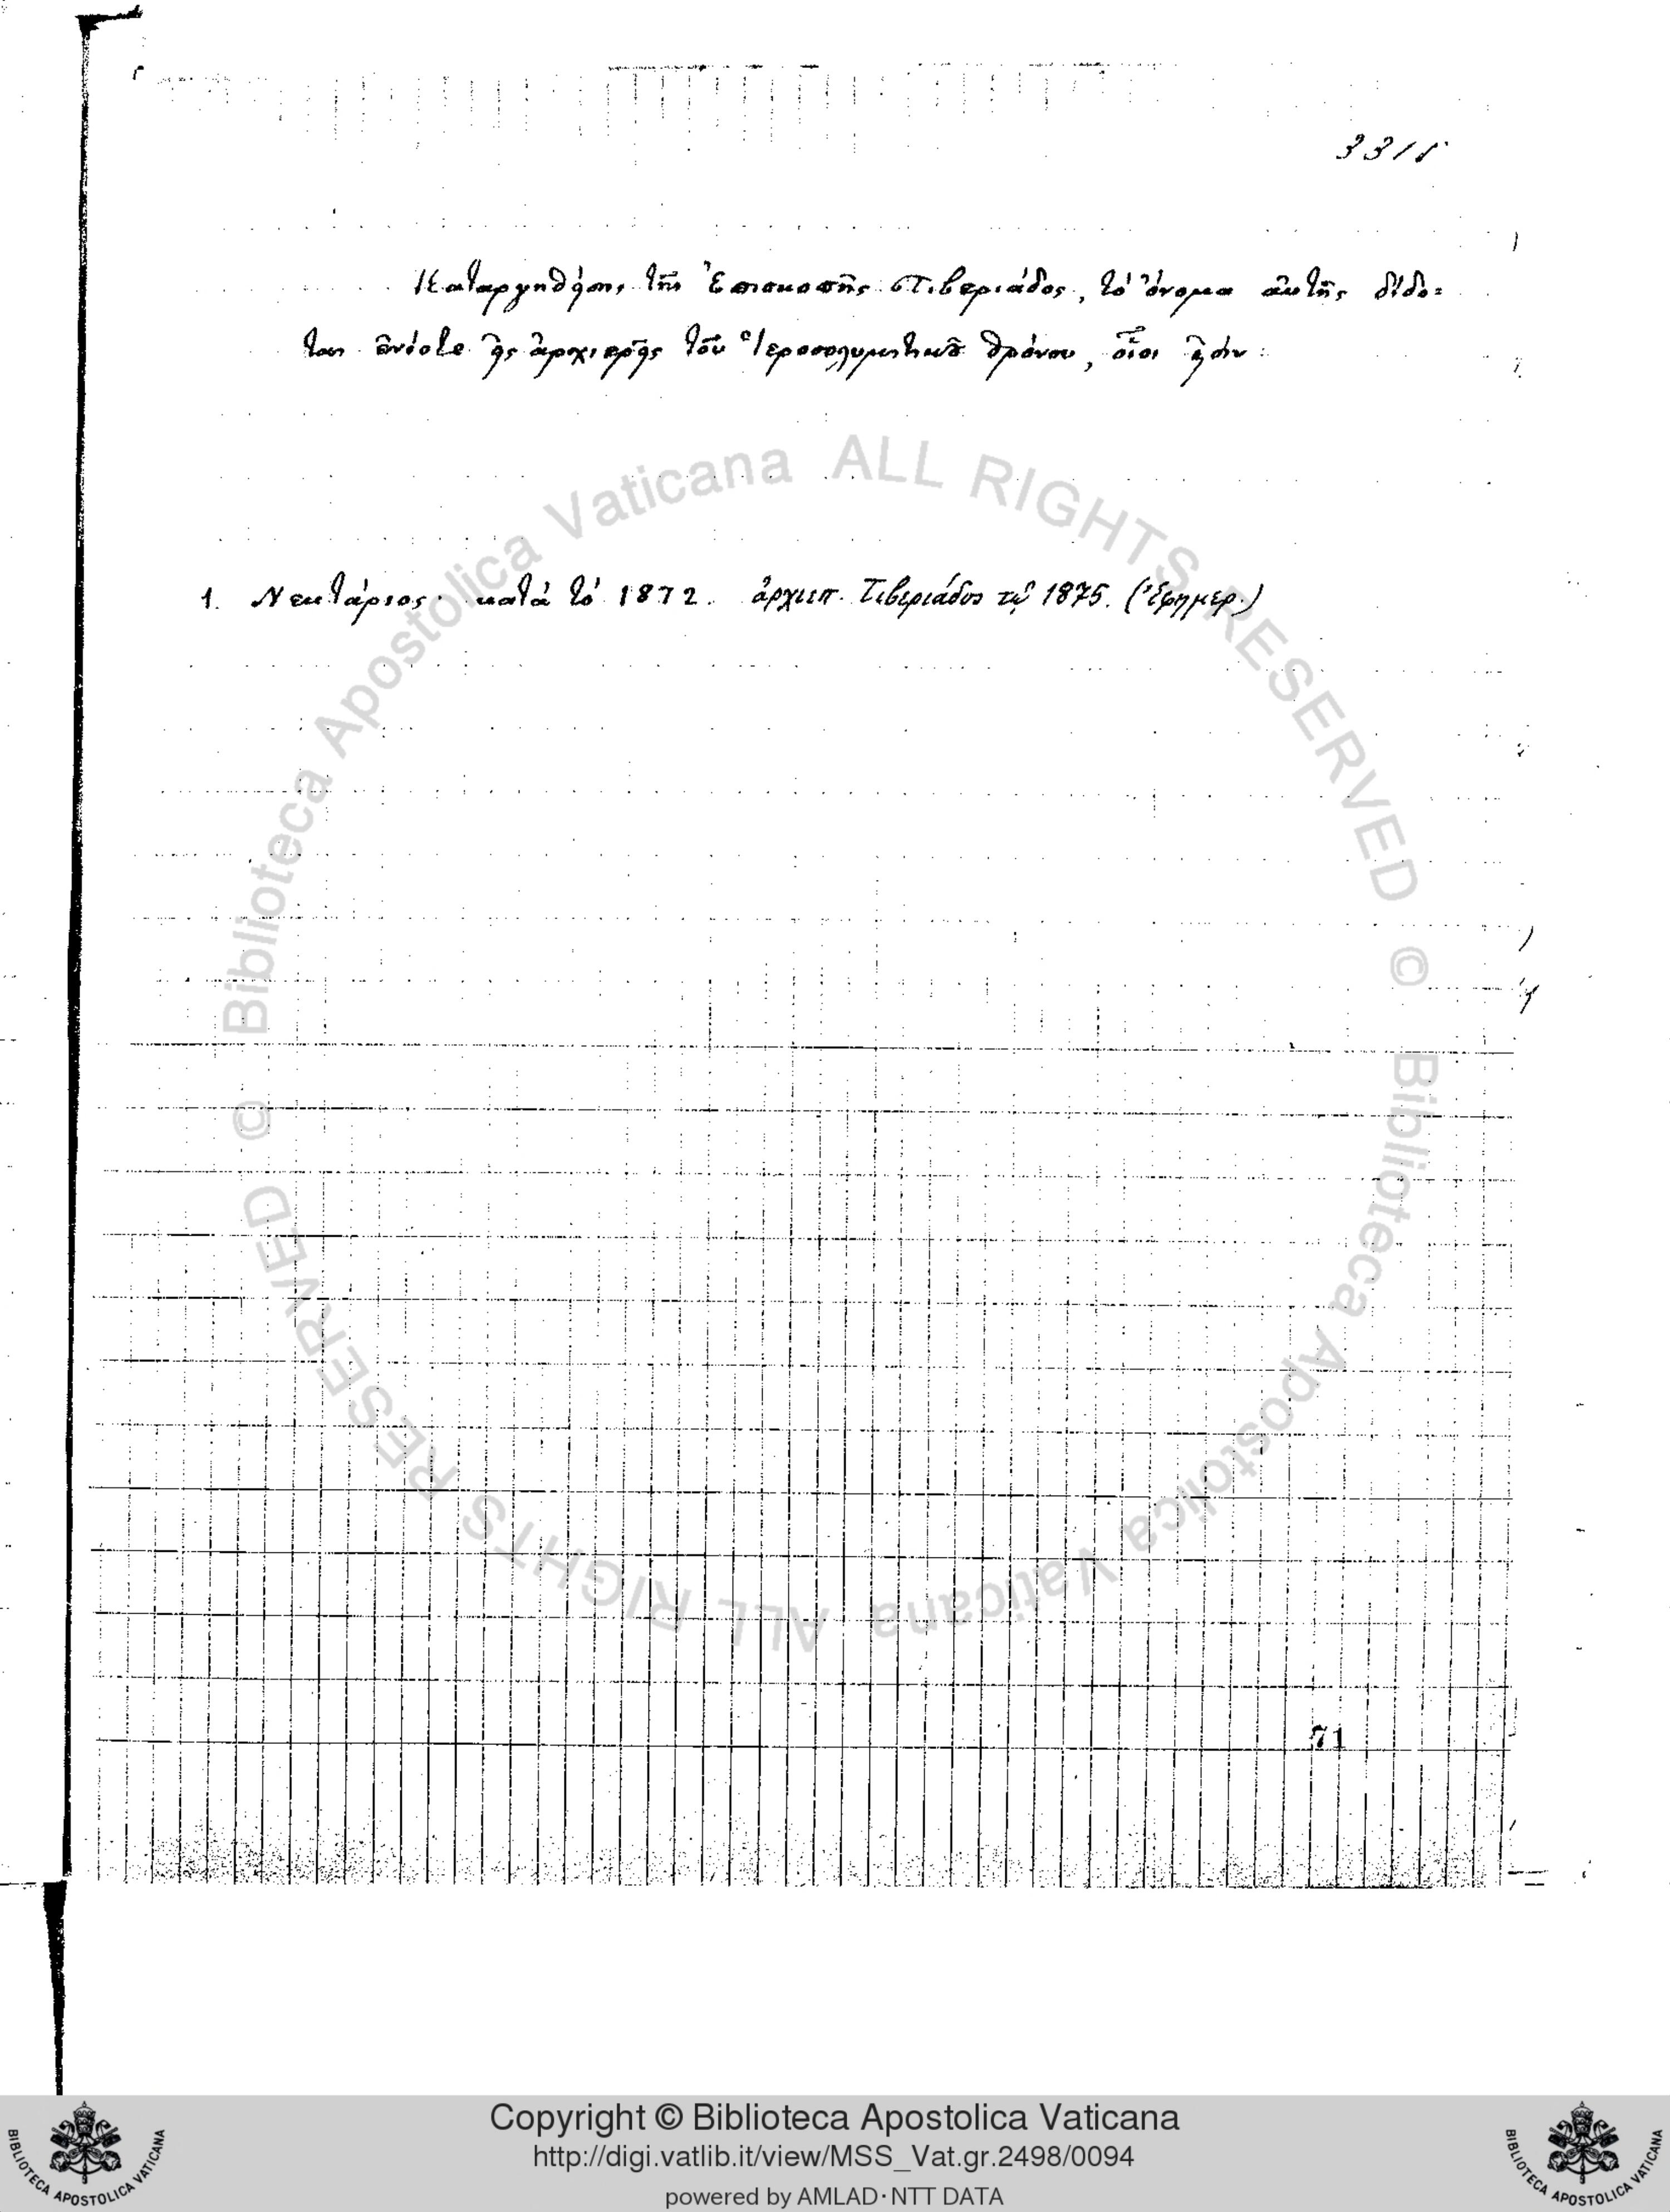 Καταργηθείσης τῆς Ἐπισκοπῆς Τιβεριάδος, τὸ ὄνομα αὐτῆς δίδο=
ται ἐνίοτε εἰς ἀρχιερεῖς τοῦ Ἱεροσολυμιτικοῦ θρόνου, οἷοι εἰσίν:
1. Νεκτάριος· κατὰ τὸ 1872. ἀρχιεπ. Τιβεριάδος τῷ 1875. (Ἐφημερ.)
71
© Biblioteca Apostolica Vaticana ALL RIGHTS RESERVED © Biblioteca Apostolica Vaticana ALL RIGHTS RESERVED
Copyright © Biblioteca Apostolica Vaticana
http://digi.vatlib.it/view/MSS_Vat.gr.2498/0094
powered by AMLAD·NTT DATA
BIBLIOTECA APOSTOLICA VATICANA
BIBLIOTECA APOSTOLICA VATICANA